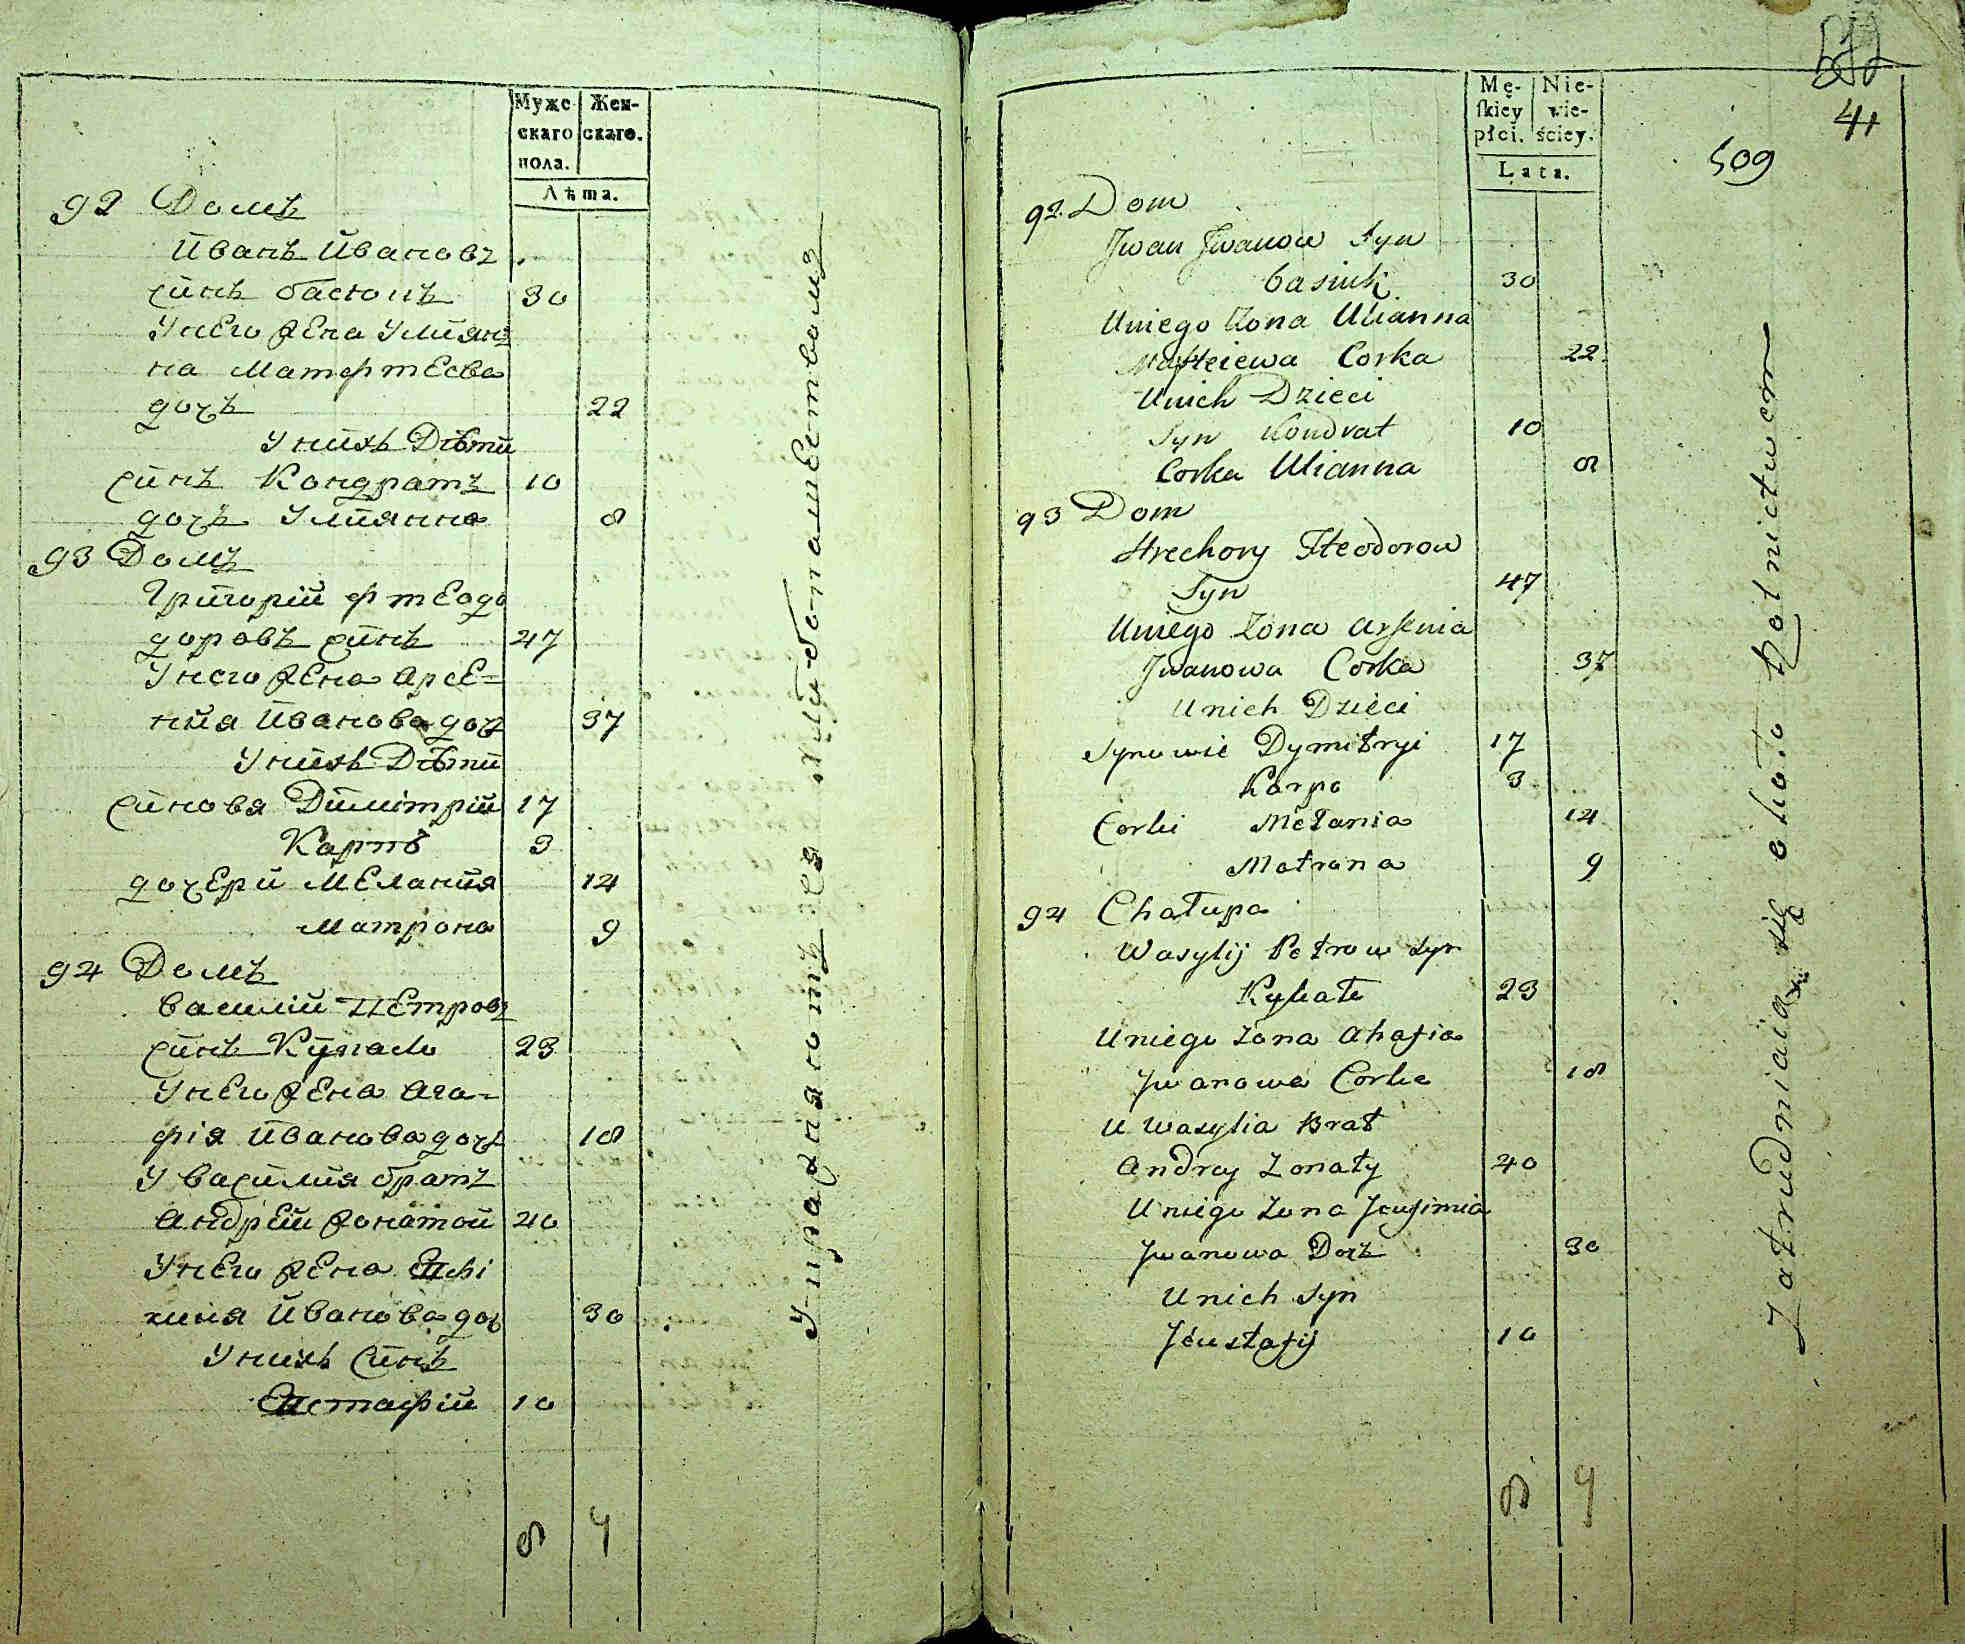 Муже Жен-
скаго скаго.
пола.
Лѣта.
92 Домъ
Иванъ Ивановъ
синъ басюкъ 30
У него жена Улиян
на Матфтеева
дочъ 22
У нихъ Дѣти
синъ Кондратъ 10
дочъ Улиянна 8
93 Домъ
Григорій фтеодо
доровъ синъ 47
У него жена Арсе=
ния Иванова дочъ 37
У нихъ Дѣти
синовя Димітрій 17
Карпъ 3
дочери Мелания 14
Матрона 9
94 Домъ
Василій Петровъ
синъ 23
У него жена Ага=
фія Иванова дочъ 18
У Василия братъ
Андрей жонатой 40
У него жена Евфі
мия Иванова доч 30
У нихъ Синъ
Евстафій 10
8 9
Упражняютъся хлѣбопашествомъ
Mę- Nie-
skiey wie-
płci. ściey.
Lata.
509
41
92. Dom
Jwan Jwanow Syn
basiuk 30
Uniego Zona Ulianna
Mafteiewa Corka 22
Unich Dzieci
Syn Kondrat 10
Corka Ulianna 8
93 Dom
Hrechory Fteodorow
Syn 47
Uniego Zona Arsenia
Jwanowa Corka 37
Unich Dzieci
Synowie Dymitryi 17
Karpo 3
Corki Mełania 14
Matrona 9
94 Chałupa
Wasylij Petrow Syn
23
Uniego Zona Ahafia
Jwanowa Corka 18
U Wasylia Brat
Andrey Zonaty 40
Uniego Zona Jeufimia
Jwanowa Docz 30
Unich Syn
Jeustafij 10
8 9
Zatrudniaią się około Rolnictwem